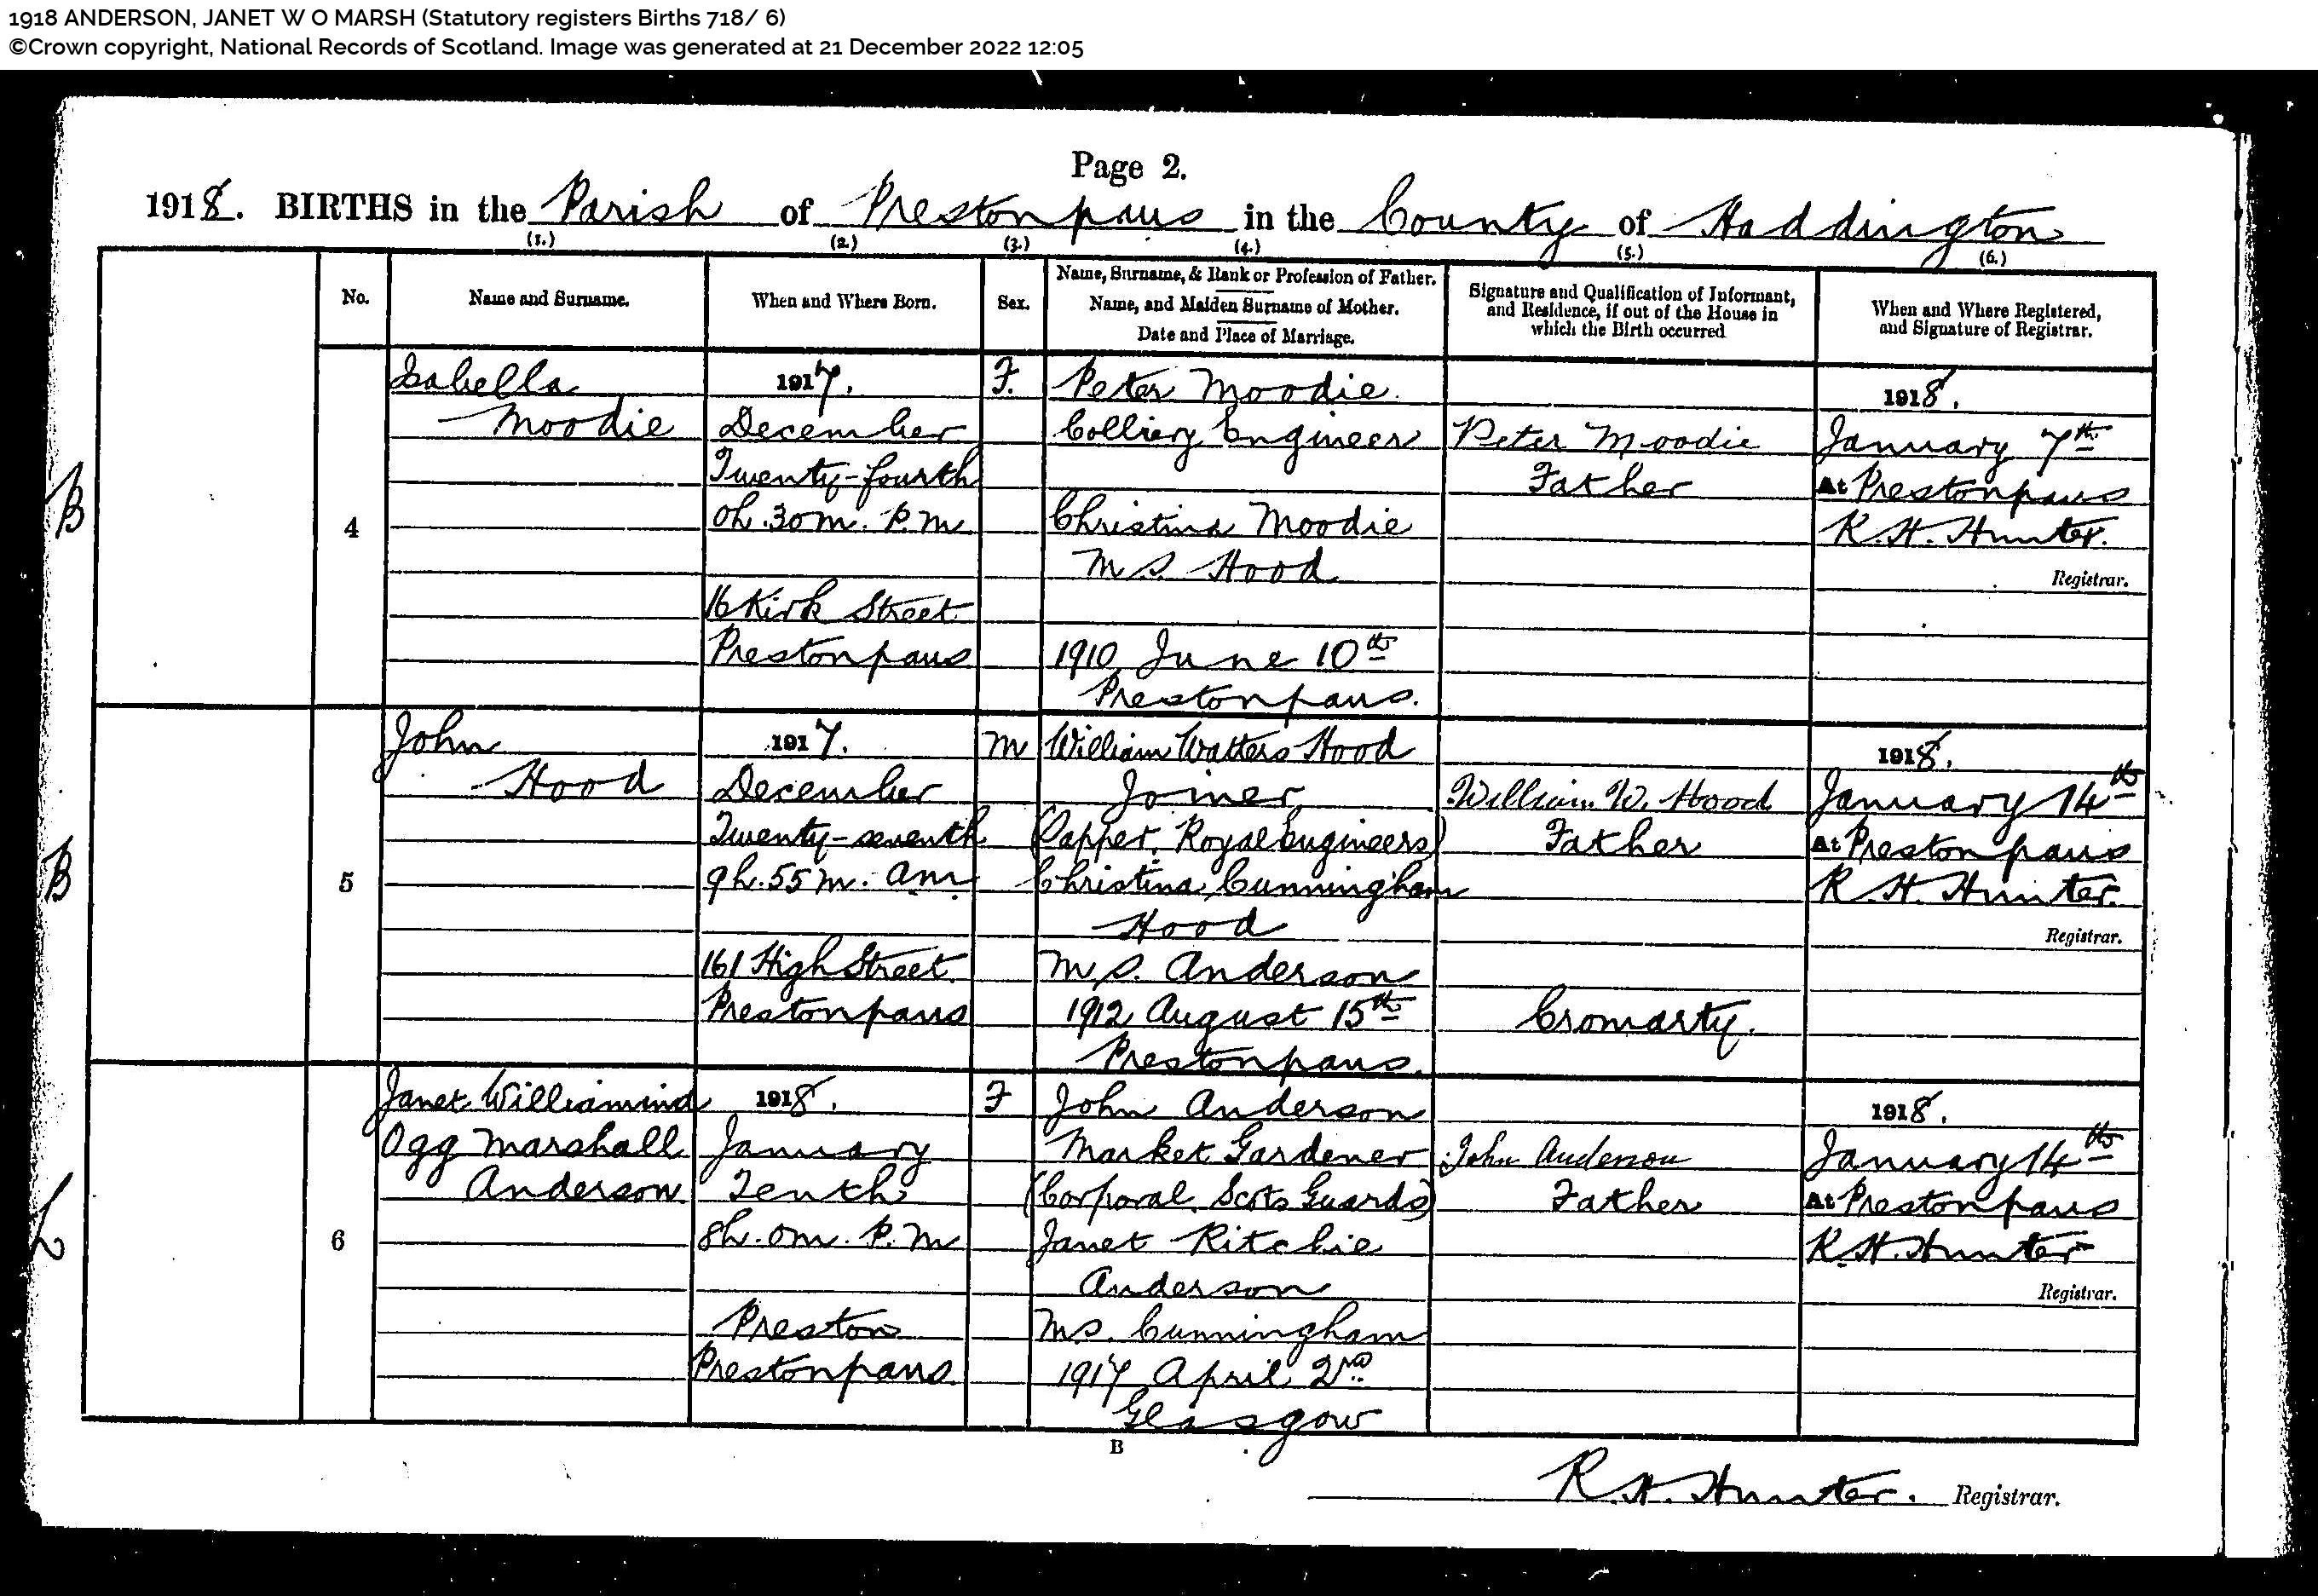 1918 ANDERSON, JANET W O MARSH (Statutory registers Births 718/ 6)
©Crown copyright, National Records of Scotland. Image was generated at 21 December 2022 12:05
Page 2.
1918. BIRTHS in the Parish of Prestonpans in the County of Haddington
(1.) (2.) (3.) (4.) (5.) (6.)
No.
Name and Surname.
When and Where Born.
Sex.
Name, Surname, & Rank or Profession of Father.
Name, and Maiden Surname of Mother.
Date and Place of Marriage.
Signature and Qualification of Informant,
and Residence, if out of the House in
which the Birth occurred
When and Where Registered,
and Signature of Registrar.
B
4
Isabella
Moodie
1917.
December
Twenty-fourth
0h. 30m. P.M
16 Kirk Street
Prestonpans
F.
Peter Moodie
Colliery Engineer
Christina Moodie
M.S. Hood
1910, June 10th
Prestonpans.
Peter Moodie
Father
1918.
January 7th
At Prestonpans
R. H. Hunter.
Registrar.
B
5
John
Hood
1917.
December
Twenty-seventh
9h. 55m. A.M.
161 High Street
Prestonpans
M
William Watters Hood
Joiner
(Sapper, Royal Engineers)
Christina Cunningham
Hood
M.S. Anderson
1912, August 15th
Prestonpans.
William W. Hood
Father
Cromarty.
1918.
January 14th
At Prestonpans
R. H. Hunter.
Registrar.
L
6
Janet Williamina
Ogg Marshall
Anderson
1918.
January
Tenth
8h. 0m. P.M
Preston
Prestonpans.
F
John Anderson
Market Gardener
(Corporal, Scots Guards)
Janet Ritchie
Anderson
M.S. Cunningham
1917, April 2nd
Glasgow
John Anderson
Father
1918.
January 14th
At Prestonpans
R. H. Hunter
Registrar.
B
R. H. Hunter. Registrar.